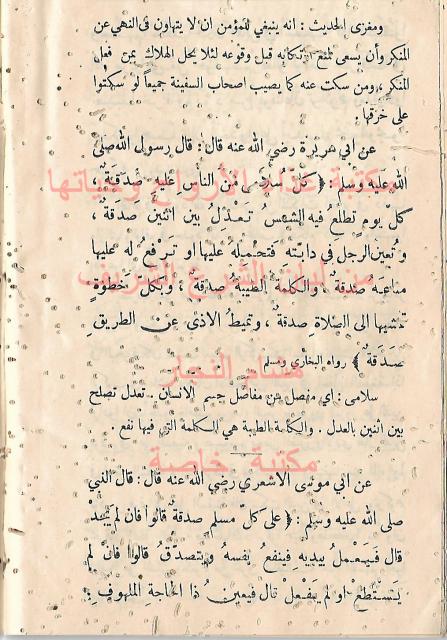 ومغزى الحديث : انه ينبغي للمؤمن ان لا يتهاون في النهي عن
المنكر وأن يسعى لمنع ارتكابه قبل وقوعه لئلا يحل الهلاك بمن فعل
المنكر ، ومن سكت عنه كما يصيب اصحاب السفينة جميعاً لو سكتوا
على خرقها .
عن ابي هريرة رضي الله عنه قال : قال رسول الله صلى
الله عليه وسلم : ﴿ كلّ سُلامى من الناس عليه صدقة ،
كل يوم تطلع فيه الشمس تعدل بين اثنين صدقة ،
وتعين الرجل في دابته فتحمله عليها او ترفع له عليها
متاعه صدقة ، والكلمة الطيبة صدقة ، وبكل خطوة
تمشيها الى الصلاة صدقة ، وتميط الاذى عن الطريق
صدقة ﴾ رواه البخاري ومسلم
سلامى : اي مفصل من مفاصل جسم الانسان . تعدل تصلح
بين اثنين بالعدل . والكلمة الطيبة هي الكلمة التي فيها نفع .
عن ابي موسى الاشعري رضي الله عنه قال : قال النبي
صلى الله عليه وسلم : ﴿ على كلّ مسلم صدقة قالوا فان لم يجد
قال فيعمل بيديه فينفع نفسه ويتصدق قالوا فان لم
يستطع او لم يفعل قال فيعين ذا الحاجة الملهوف
مكتبة
الأرواح وحياتها
من لسان الشرع الشريف
هشام النجار
مكتبة خاصة